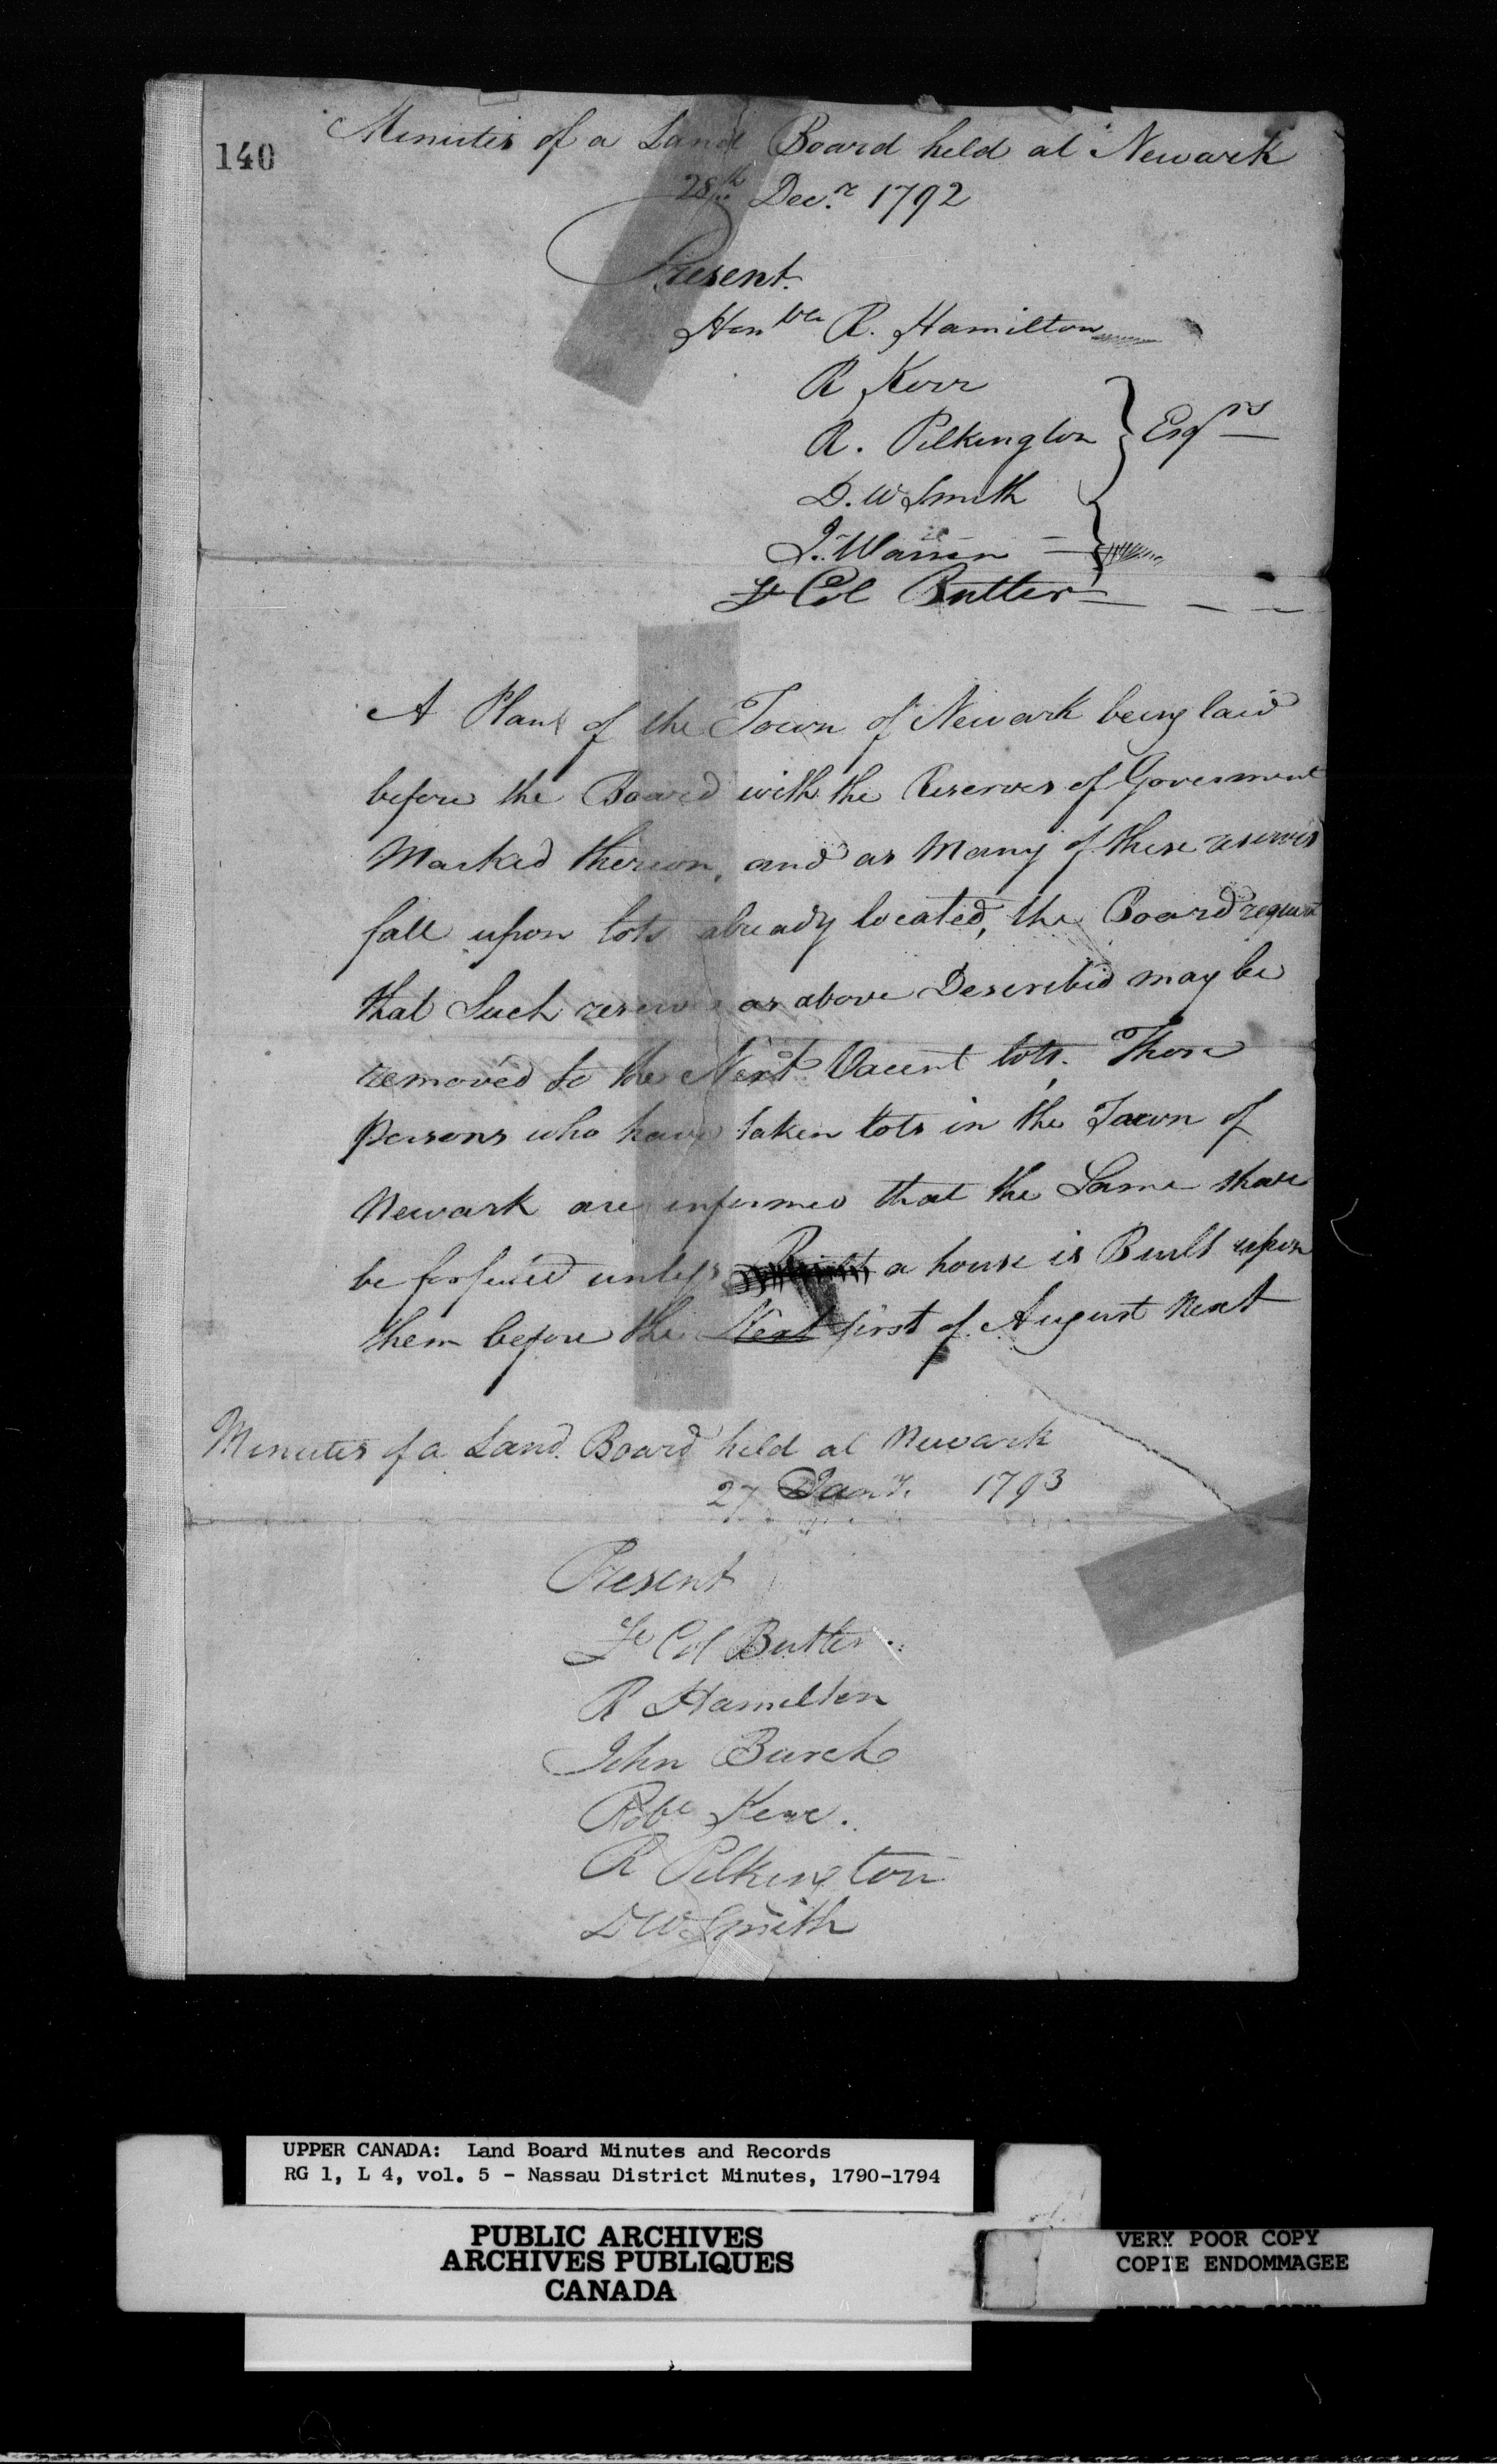 140
Minutes of a Land Board held at Newark
28th Decr 1792
Present
Honble R. Hamilton
R Kerr
R. Pilkington Esqrs
D. W Smith
J. Warren
Lt Col Butler
A Plan of the Town of Newark being laid
before the Board with the Reserves of Goverment
Marked thereon, and as Many of these reserves
fall upon lots already located, the Board request
that Such reserves as above Described may be
removed to the Next Vacent lots. Those
persons who have taken lots in the Town of
Newark are informed that the Same shall
be forfeited unless a house is Built upon
them before the Next first of August Next
Minutes of a Land Board held at Newark
27 Jany. 1793
Present
Lt Col Butler
R Hamilton
John Burch
Robt Kerr.
R Pilkington
D W Smith
UPPER CANADA: Land Board Minutes and Records
RG 1, L 4, vol. 5 - Nassau District Minutes, 1790-1794
PUBLIC ARCHIVES
ARCHIVES PUBLIQUES
CANADA
VERY POOR COPY
COPIE ENDOMMAGEE
VERY POOR COPY